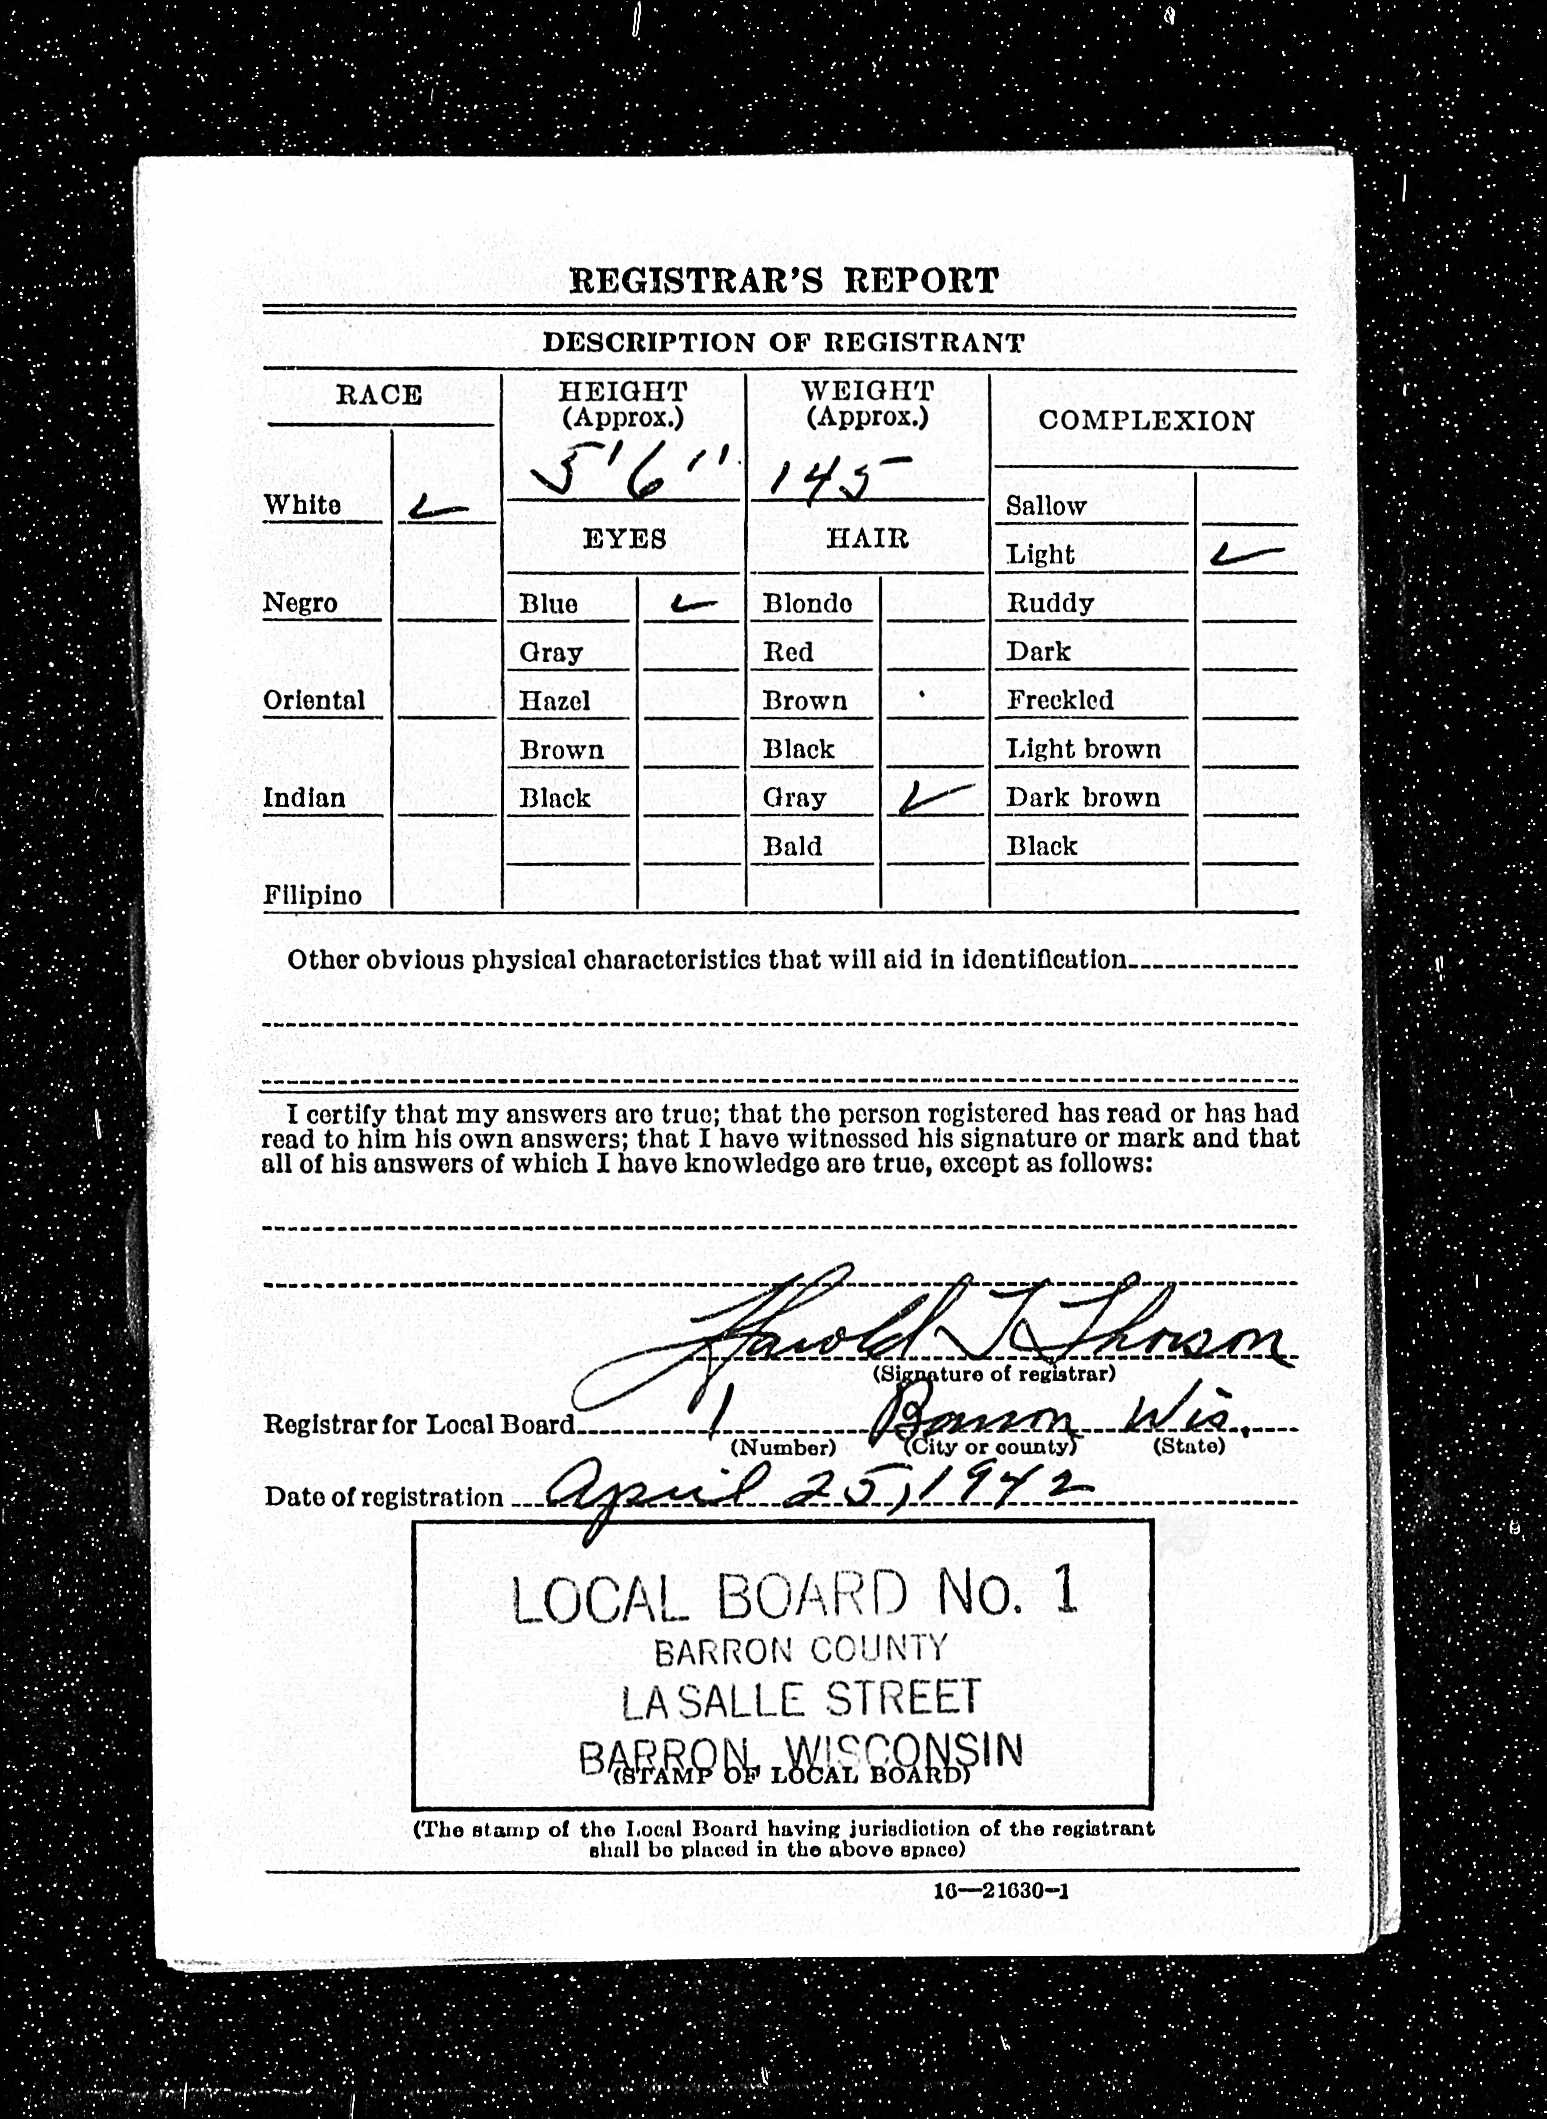 REGISTRAR'S REPORT
DESCRIPTION OF REGISTRANT
RACE
HEIGHT
(Approx.)
WEIGHT
(Approx.)
COMPLEXION
5'6"
145
White ✓
Sallow
EYES
HAIR
Light ✓
Negro
Blue ✓
Blonde
Ruddy
Gray
Red
Dark
Oriental
Hazel
Brown
Freckled
Brown
Black
Light brown
Indian
Black
Gray ✓
Dark brown
Bald
Black
Filipino
Other obvious physical characteristics that will aid in identification
I certify that my answers are true; that the person registered has read or has had
read to him his own answers; that I have witnessed his signature or mark and that
all of his answers of which I have knowledge are true, except as follows:
Harold T Thorson
(Signature of registrar)
Registrar for Local Board 1 Barron Wis.
(Number) (City or county) (State)
Date of registration April 25, 1942
LOCAL BOARD No. 1
BARRON COUNTY
LA SALLE STREET
BARRON, WISCONSIN
(STAMP OF LOCAL BOARD)
(The stamp of the Local Board having jurisdiction of the registrant
shall be placed in the above space)
16—21630-1